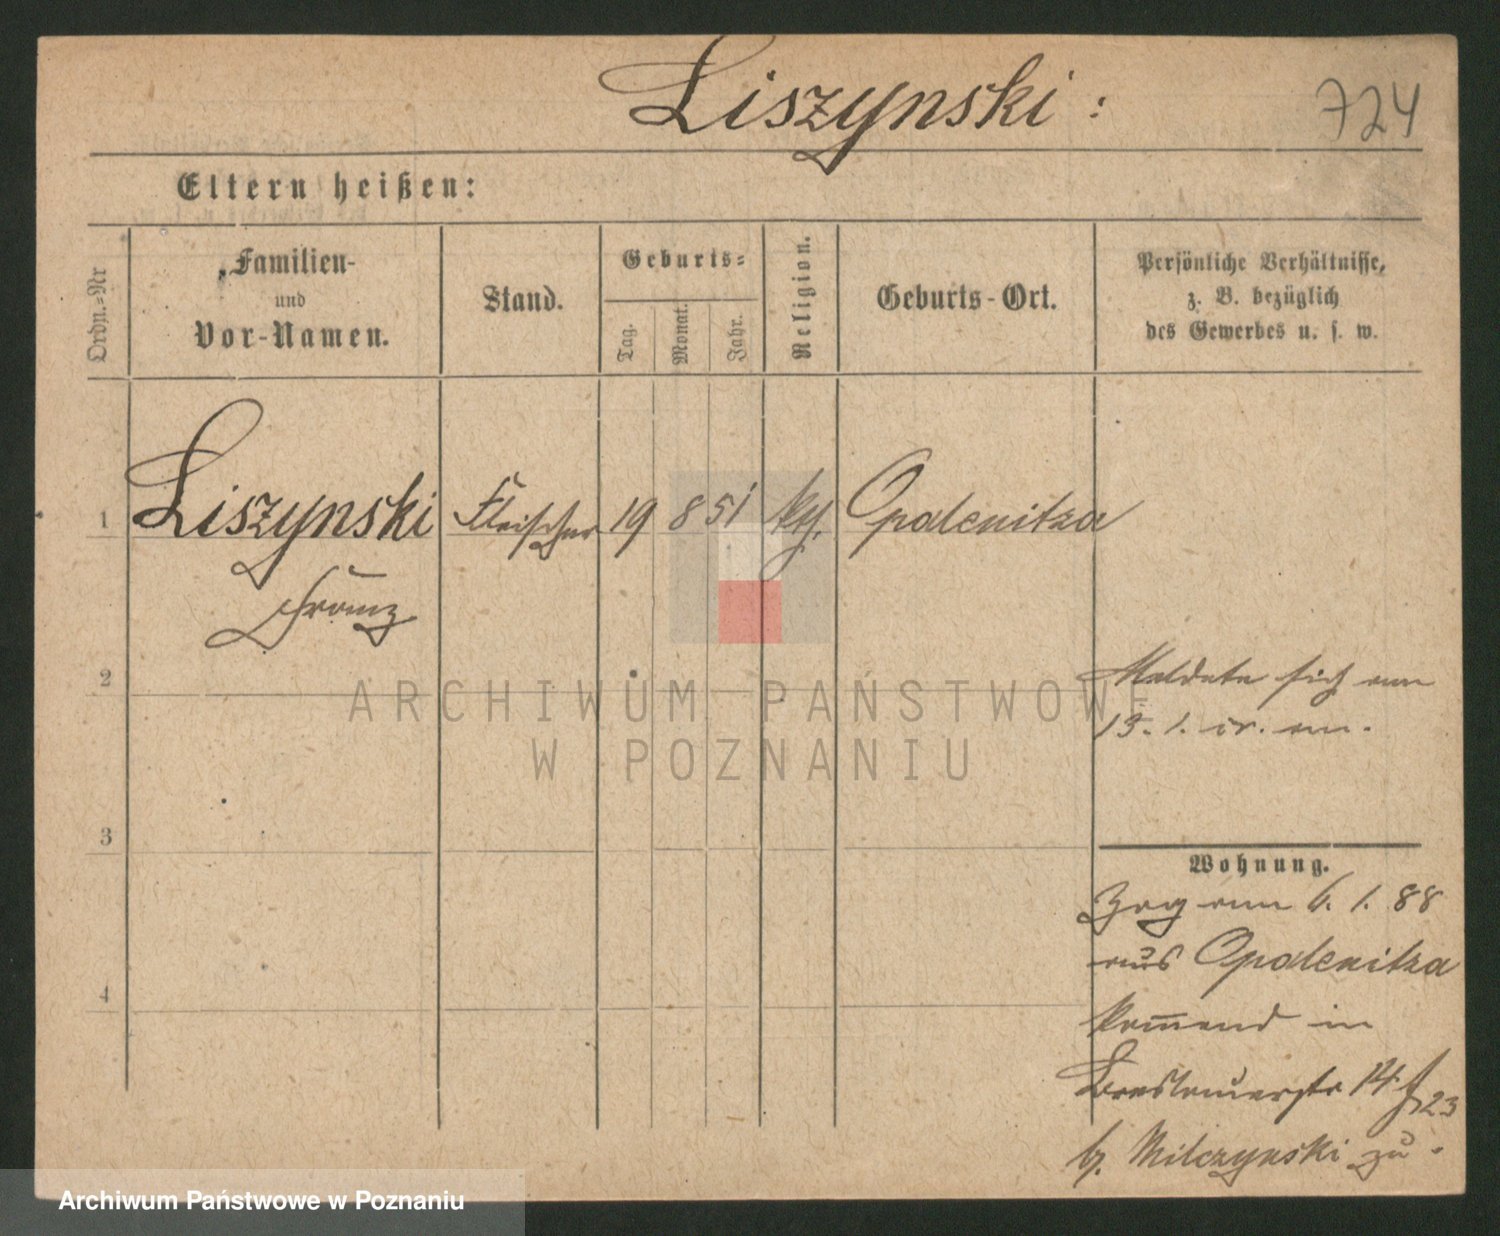 Liszynski :
724
Eltern heißen:
Ordn.=Nr
Familien-
und
Vor-Namen.
Stand.
Geburts=
Tag.
Monat.
Jahr.
Religion.
Geburts-Ort.
Persönliche Verhältnisse,
z. B. bezüglich
des Gewerbes u. s. w.
1 Liszynski Fleischer 19 8 51 kg. Opalenitza
Franz
2
Meldete sich am
13. 1. cr. an.
ARCHIWUM PAŃSTWOWE
W POZNANIU
3
Wohnung.
Zog am 6. 1. 88
aus Opalenitza
kom̄end in
Breslauerstr 14
23
b. Milczynski zu.
4
Archiwum Państwowe w Poznaniu